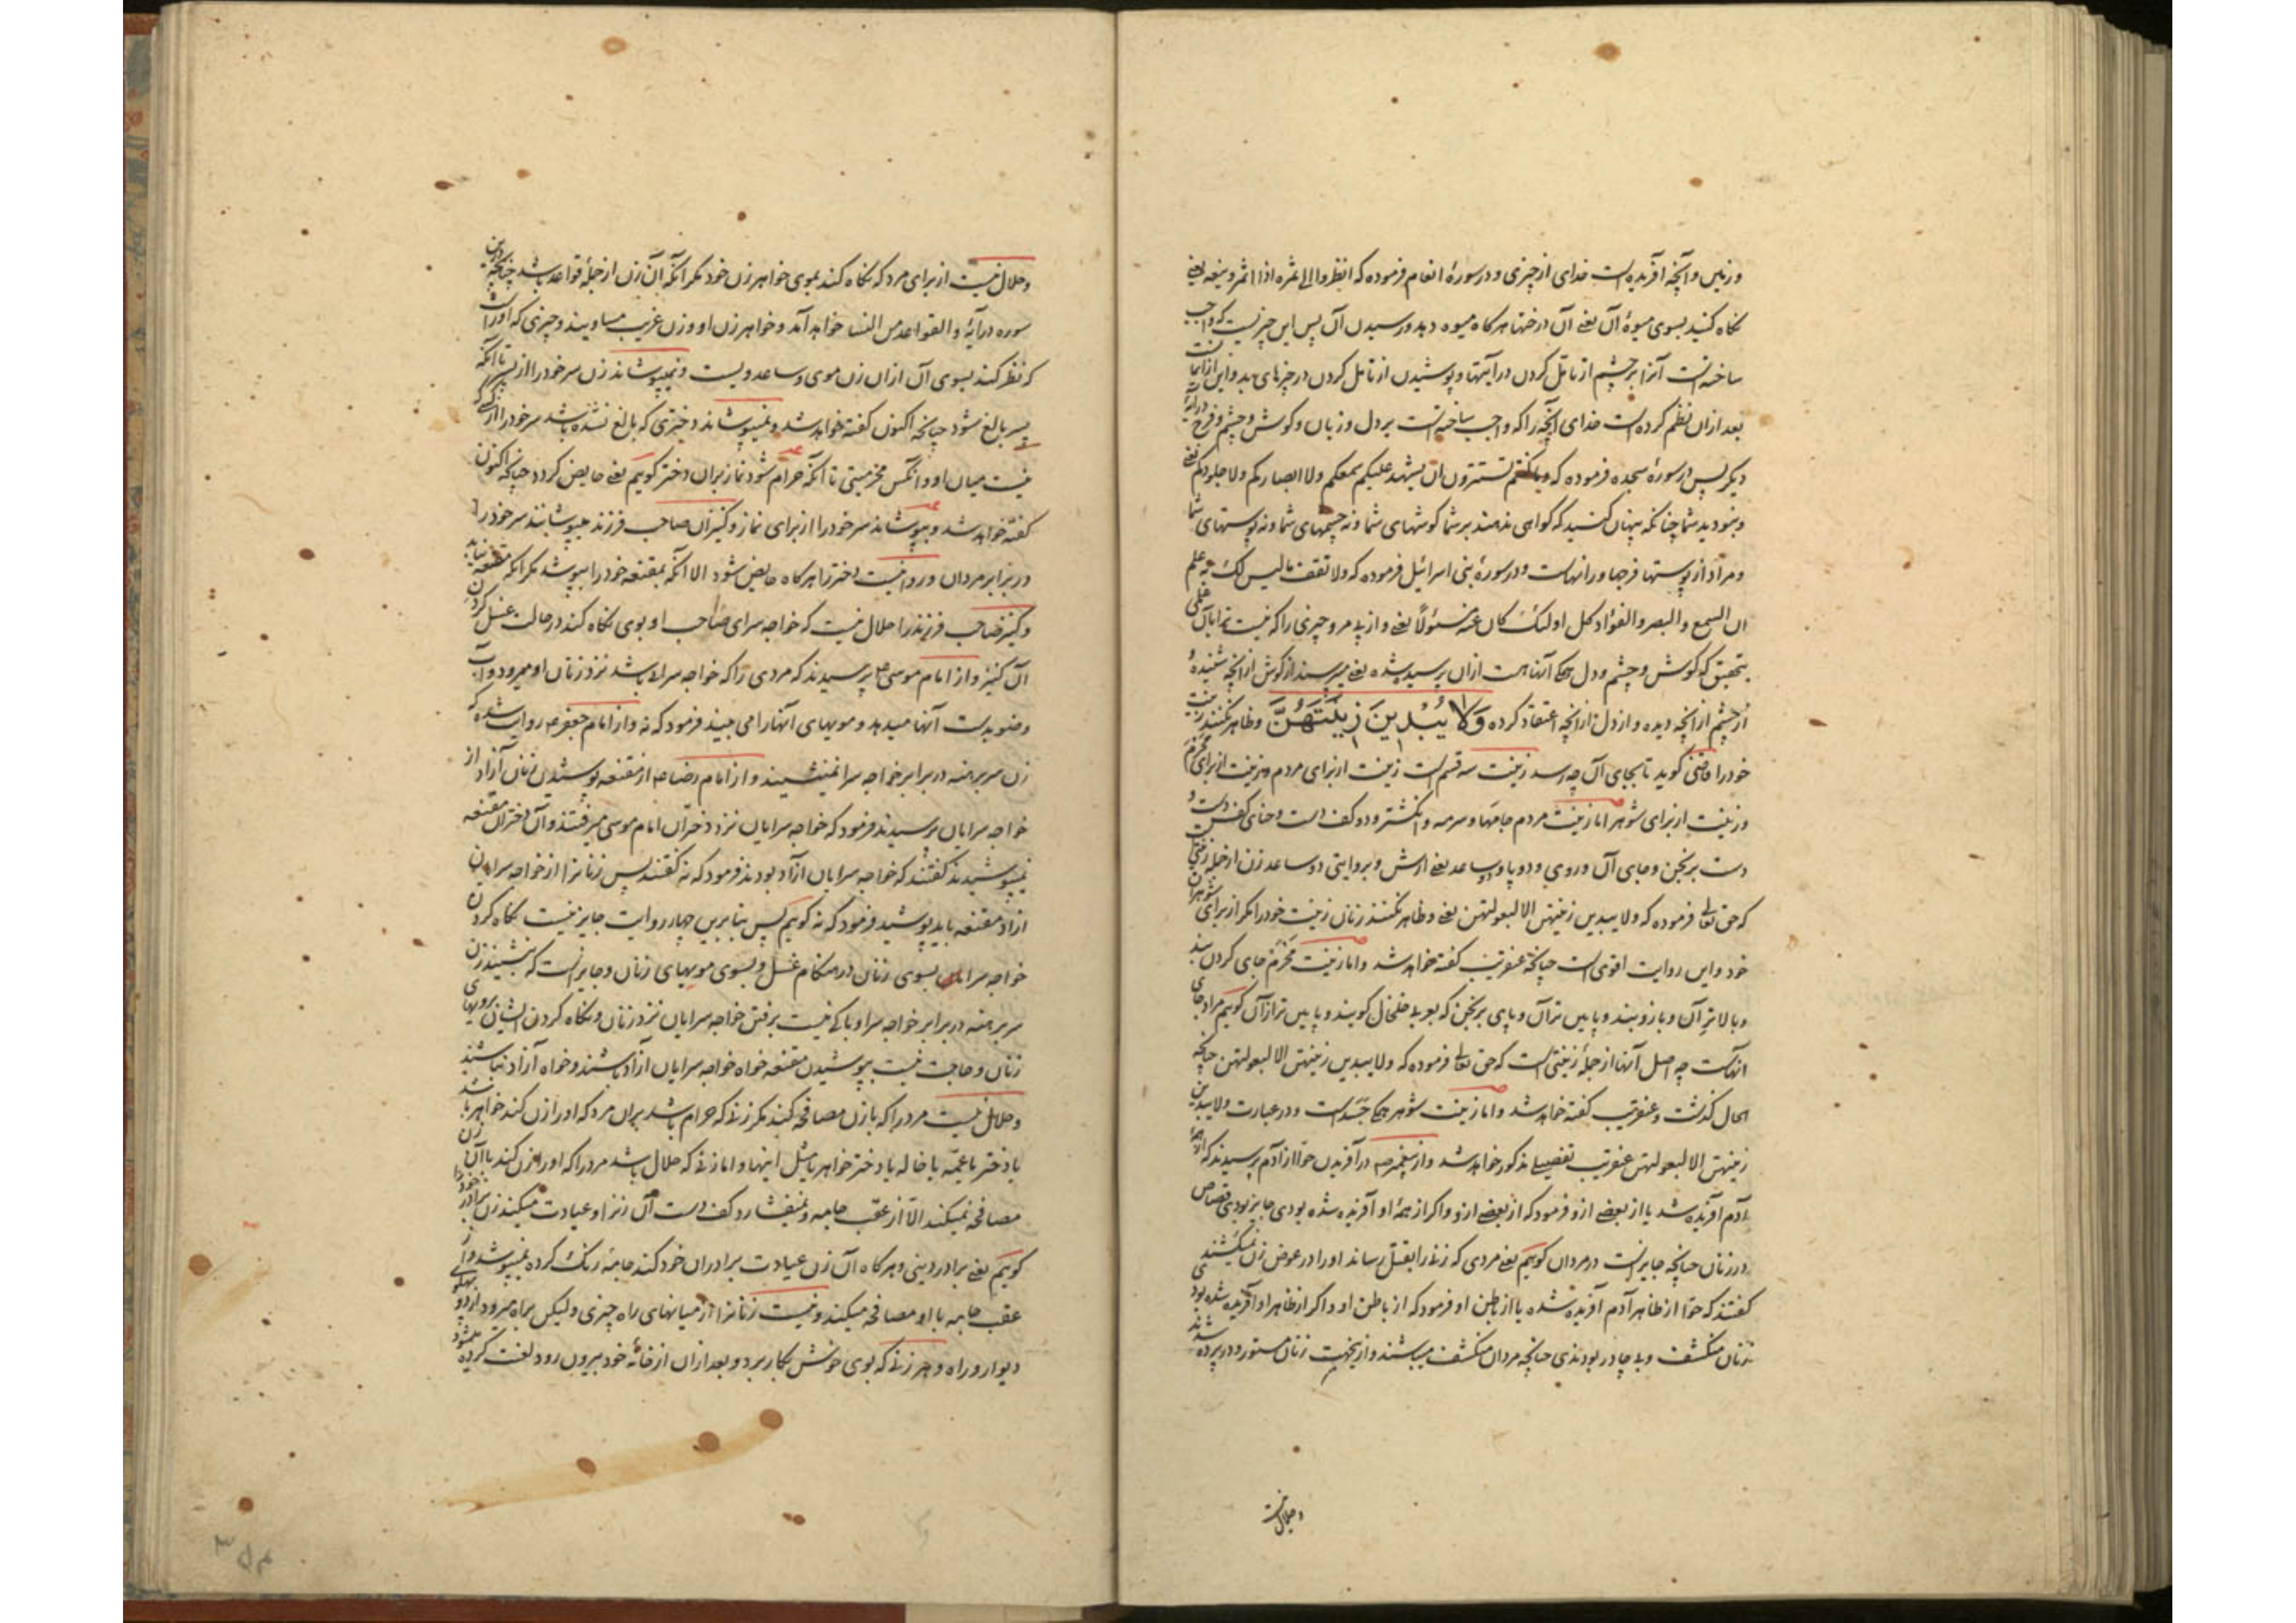 و زمین و آنچه آفریده است خدای از چیزی و در سورهٔ انعام فرموده که انظروا الی ثمره اذا اثمر و ینعه یعنی
نکاه کنید بسوی میوهٔ آن یعنی آن درختها هرکاه میوه دهد و رسیدن آن پس این چیزیست که واجب
ساخته است آنرا بر چشم از تامل کردن در آیتها و پوشیدن از تامل کردن در چیزهای بد و این از ایمانست
بعد ازان نظم کرده است خدای آنچه را که واجب ساخته است بر دل و زبان و کوش و چشم و فرج در آیهٔ
دیکر پس در سورهٔ سجده فرموده که و ما کنتم تستترون ان یشهد علیکم سمعکم و لا ابصارکم و لا جلودکم یعنی
و نبودید شما چنانکه پنهان کنید که کواهی ندهند بر شما کوشهای شما و نه چشمهای شما و نه پوستهای شما
و مراد از پوستها فرجها و رانهاست و در سورهٔ بنی اسرائیل فرموده که و لا تقف ما لیس لک به علم
ان السمع و البصر و الفؤاد کل اولئک کان عنه مسئولاً یعنی و از پی مرو چیزی را که نیست ترا بآن علمی
بتحقیق که کوش و چشم و دل همکی آنها هست ازان پرسیده شده یعنی میپرسند از کوش از آنچه شنیده
از چشم از آنچه دیده و از دل از آنچه اعتقاد کرده وَلَا یُبْدِینَ زِینَتَهُنَّ و ظاهر نکنند زینت
خود را قاضی کوید تا بجای آن چه رسد زینت سه قسم است زینت از برای مردم و زینت از برای محرم
و زینت از برای شوهر اما زینت مردم جامها و سرمه و انکشتر و دو کف دست و حنای کف دست و
دست برنجن و جای آن و روی و دو پا و دو ساعد یعنی ارش و بروایتی دو ساعد زن از جمله زینتی
که حق تعالی فرموده که و لا یبدین زینتهن الا لبعولتهن یعنی و ظاهر نکنند زنان زینت خود را مکر از برای شوهران
خود و این روایت اقوی است چنانچه عنقریب کفته خواهد شد و اما زینت محرم جای کردن بند
و بالاتر آن و بازوبند و پایین تر آن و پای برنجن که بعربی خلخال کویند و پایین تر از آن کویم مراد جای
آنهاست چه اصل آنها از جملهٔ زینتی است که حق تعالی فرموده که و لا یبدین زینتهن الا لبعولتهن چنانچه
الحال کذشت و عنقریب کفته خواهد شد و اما زینت شوهر همکی جسد است و در عبارت و لا یبدین
زینتهن الا لبعولتهن عنقریب تفصیلی مذکور خواهد شد و از پیغمبر ص در آفریدن حوا از آدم پرسیدند که از همهٔ
آدم آفریده شد یا از بعضی ازو فرمود که از بعضی ازو و اکر از همهٔ او آفریده شده بودی جایز بودی قصاص
در زنان چنانچه جایز است در مردان کویم یعنی مردی که زنی را بقتل رساند او را در عوض زن نمیکشند
کفتند که حوا از ظاهر آدم آفریده شده یا از باطن او فرمود که از باطن او و اکر از ظاهر او آفریده شده بودی
زنان منکشف و بی چادر بودندی چنانچه مردان منکشف میباشند و ازینجهت زنان مستور و در پرده شدند
و حلال نیست
و حلال نیست از برای مرد که نکاه کند بموی خواهر زن خود مکر آنکه آن زن از جملهٔ قواعد باشد چنانچه درین
سوره در آیهٔ و القواعد من النسا خواهد آمد و خواهر زن او و زن غریب مساویند و چیزی که او راست
که نظر کند بسوی آن ازان زن موی و ساعد و دست و نمیپوشاند زن سر خود را از پسر تا آنکه
پسر بالغ شود چنانچه اکنون کفته خواهد شد و نمیپوشاند دختری که بالغ نشده باشد سر خود را از کسی که
نیست میان او و آنکس محرمیتی تا آنکه حرام شود نماز بران دختر کویم یعنی حایض کردد چنانکه اکنون
کفته خواهد شد و بپوشاند سر خود را از برای نماز و کنیزان صاحب فرزند میپوشانند سر خود را
در برابر مردان و روا نیست دختر را هرکاه حایض شود الا آنکه بمقنعه خود را بپوشد مکر آنکه مقنعه نیابد
و کنیز صاحب فرزند را حلال نیست که خواجه سرای صاحب او بوی نکاه کند در حالت غسل کردن
آن کنیز و از امام موسی ع پرسیدند که مردی را که خواجه سرا باشد نزد زنان او میرود و آب
وضو بدست آنها میدهد و مویهای آنها را می بیند فرمود که نه و از امام جعفر ع روایت شده که
زن سر برهنه در برابر خواجه سرا نمینشیند و از امام رضا ع از مقنعه پوشیدن زنان آزاد از
خواجه سرایان پرسیدند فرمود که خواجه سرایان نزد دختران امام موسی میرفتند و آن دختران مقنعه
نمیپوشیدند کفتند که خواجه سرایان آزاد بودند فرمود که نه کفتند پس زنانرا از خواجه سرایان
آزاد مقنعه باید پوشید فرمود که نه کویم پس بنا برین چهار روایت جایز نیست نکاه کردن
خواجه سرایان بسوی زنان در هنکام غسل و بسوی مویهای زنان و جایز است که بنشیند زن
سر برهنه در برابر خواجه سرا و باکی نیست برفتن خواجه سرایان نزد زنان و نکاه کردن ایشان برویهای
زنان و حاجت نیست بپوشیدن مقنعه خواه خواجه سرایان آزاد باشند و خواه آزاد نباشند
و حلال نیست مرد را که با زن مصافحه کند مکر زنی که حرام باشد بران مرد که او را زن کند خواهر باشد
یا دختر یا عمّه یا خاله یا دختر خواهر یا مثل اینها و اما زنی که حلال باشد مرد را که او را زن کند با آن زن
مصافحه نمیکند الّا از عقب جامه و نمیفشارد کف دست آن زنرا و عیادت میکند زن برادر خود را
کویم یعنی برادر دینی و هرکاه آن زن عیادت برادران خود کند جامهٔ رنک کرده نمیپوشد و از
عقب جامه با او مصافحه میکند و نیست زنانرا از میانهای راه چیزی و لیکن براه میرود از دو پهلوی
دیوار و راه و هر زنی که بوی خوش بکار برد و بعد ازان از خانهٔ خود بیرون رود لعنت کرده میشود